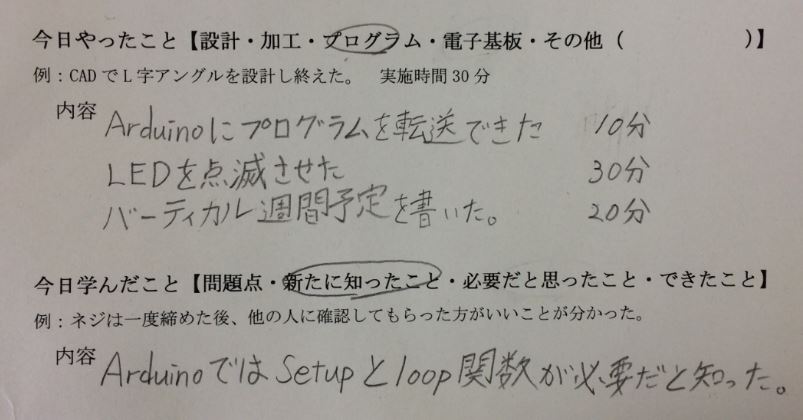 今日やったこと【設計・加工・プログラム・電子基板・その他（　　　　　　）】
例：CADでL字アングルを設計し終えた。　実施時間30分
内容 Arduinoにプログラムを転送できた　10分
LEDを点滅させた　30分
バーティカル週間予定を書いた。　20分
今日学んだこと【問題点・新たに知ったこと・必要だと思ったこと・できたこと】
例：ネジは一度締めた後、他の人に確認してもらった方がいいことが分かった。
内容 ArduinoではSetupとloop関数が必要だと知った。